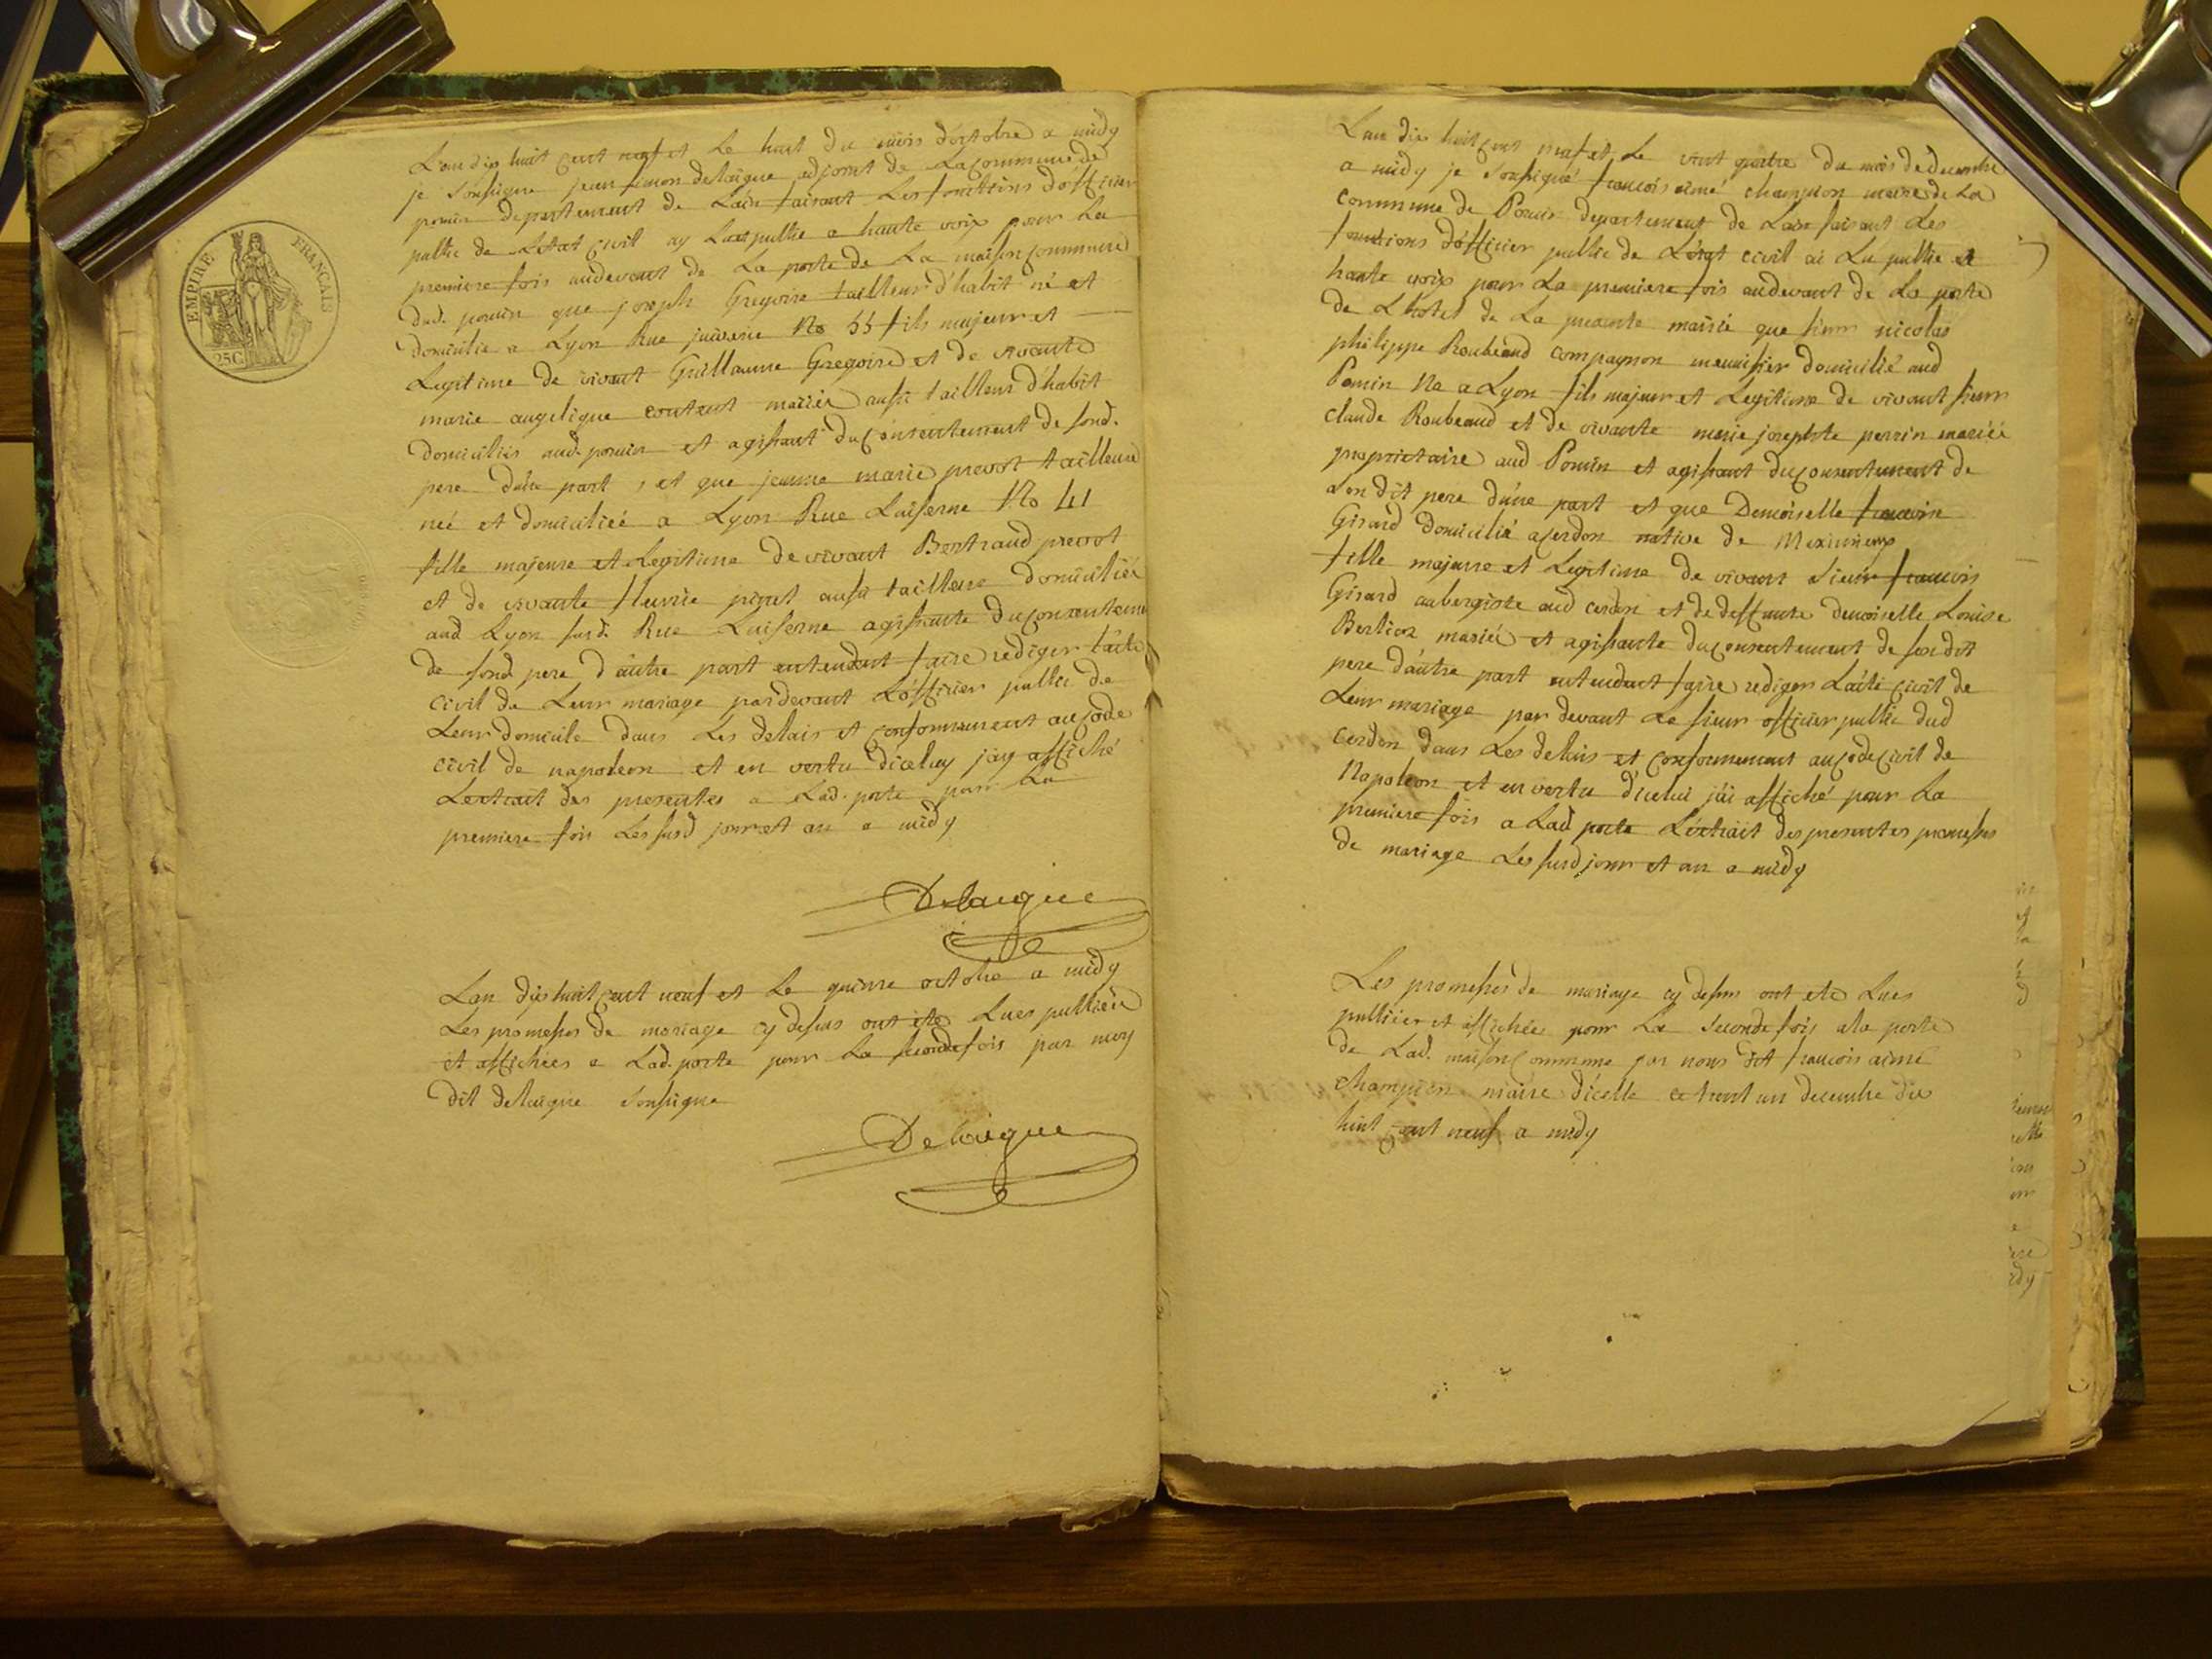 EMPIRE FRANÇAIS
25C
L'an dix huit cent neuf et le huit du mois d'octobre a midy
je soussigné jean simon delaigue adjoint de la commune de
poncin departement de L'ain faisant les fonctions d'officier
public de Letat civil ay Lu et publié a haute voix pour La
premiere fois audevant de La porte de La maison commune
dud. poncin que joseph Gregoire tailleur d'habit né et
domicilié a Lyon Rue juiverie No 55 fils majeur et
Legitime de vivant Guillaume Gregoire et de vivante
marie angelique mariés aussi tailleur d'habit
domiciliés aud. poncin et agissant du consentement de sond.
pere d'une part, et que jeanne marie prevot tailleuse
née et domiciliée a Lyon Rue Laiserne No 41
fille majeure et Legitime de vivant Bertrand prevot
et de vivante fleurie aussi tailleuse domiciliés
aud Lyon susd. Rue Laiserne agissante du consenteme
de sond pere d'autre part entendant faire rediger L'acte
civil de Leur mariage pardevant L'officier public de
Leur domicile dans les delais et conformement au code
civil de napoleon et en vertu d'iceluy j'ay affiché
L'extrait des presentes a Lad. porte pour La
premiere fois Les susd jour et an a midy
Delaigue
L'an dix huit cent neuf et le quinze octobre a midy
Les promesses de mariage cy dessus ont été Lues publiées
et affichées a Lad. porte pour La seconde fois par moy
dit delaigue soussigné
Delaigue
L'an dix huit cent neuf et Le vint quatre du mois de decembre
a midy je soussigné francois aimé champion maire de La
commune de Poncin departement de L'ain faisant Les
fonctions d'officier public de L'etat civil ai Lu publié et
haute voix pour La premiere fois audevant de La porte
de L'hotel de La presente mairie que sieur nicolas
philippe Roubeaud compagnon menuisier domicilié aud
Poncin Né a Lyon fils majeur et Legitime de vivant sieur
claude Roubeaud et de vivante marie josephte perrin mariés
proprietaire aud Poncin et agissant du consentement de
son dit pere d'une part et que Demoiselle
Girard domicilié a cerdon native de Meximieux
fille majeure et Legitime de vivant Sieur francois
Girard aubergiste aud cerdon et de deffunte demoiselle Louise
Berlioz mariés et agissante du consentement de son dit
pere d'autre part entendant faire rediger L'acte civil de
Leur mariage par devant Le sieur officier public dud
cerdon dans Les delais et conformement au code civil de
Napoleon et en vertu d'icelui j'ai affiché pour La
premiere fois a Lad porte L'extrait des presentes promesses
de mariage Les susd jour et an a midy
Les promesses de mariage cy dessus ont été Lues
publiées et affichées pour La seconde fois a la porte
de Lad. maison commune par nous dit francois aimé
champion maire d'icelle ce trent un decembre dix
huit cent neuf a midy